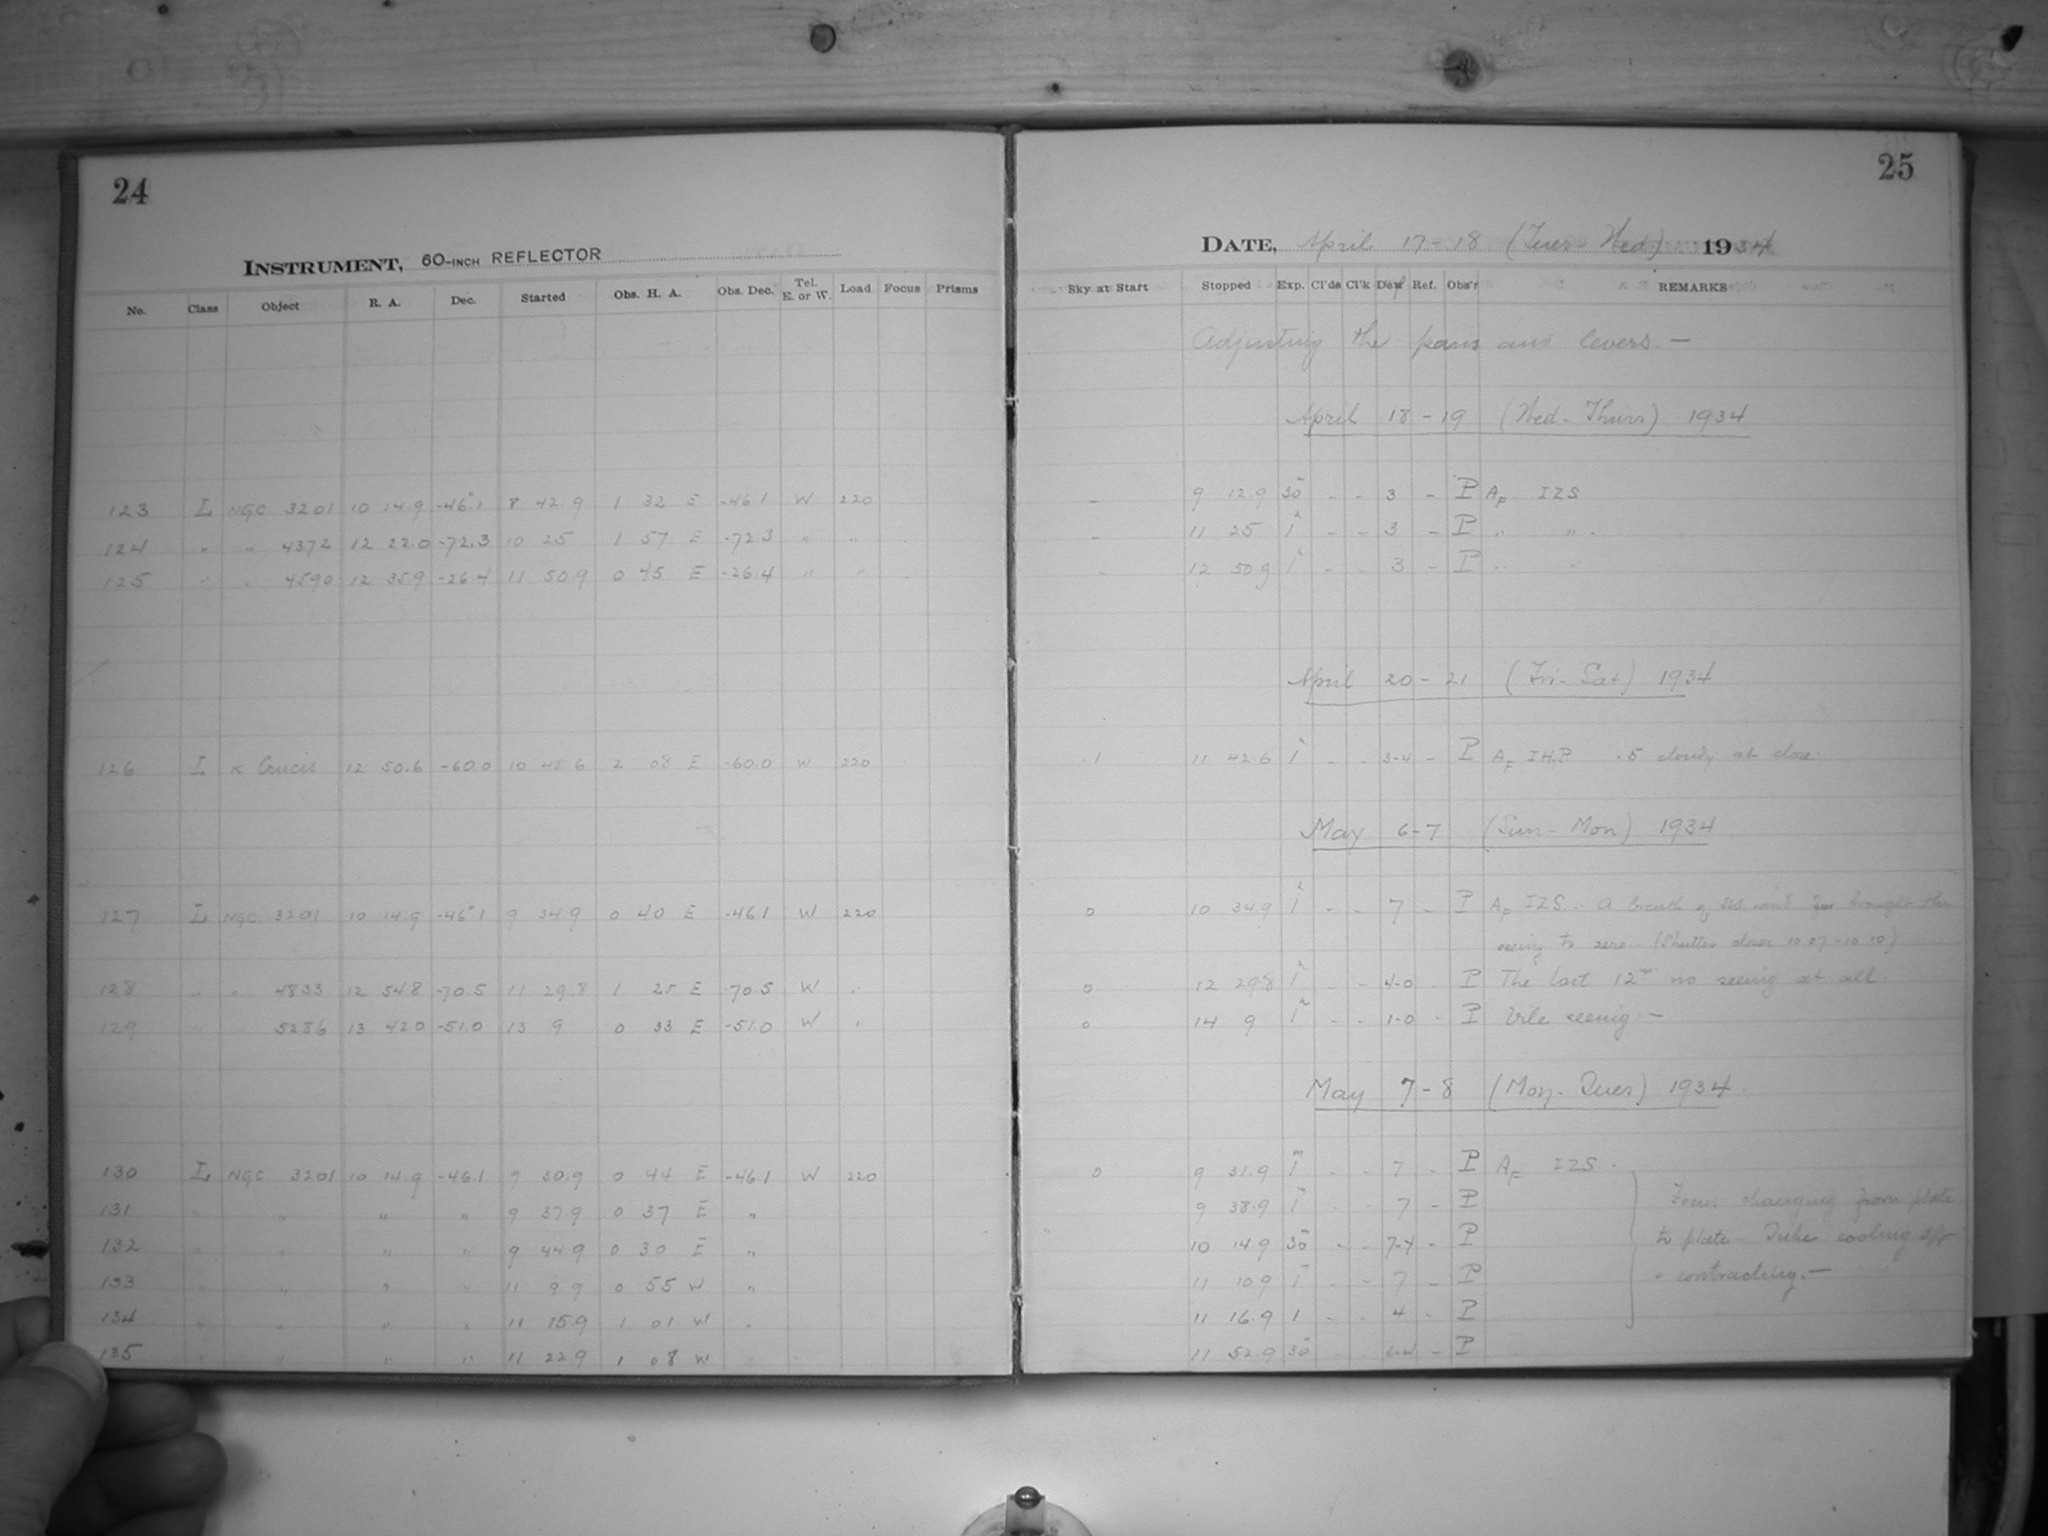 24
INSTRUMENT, 60-INCH REFLECTOR
No. Class Object R. A. Dec. Started Obs. H. A. Obs. Dec. Tel. E. or W. Load Focus Prisms
123 L NGC 3201 10 14.9 -46°.1 8 42.9 1 32 E -46.1 W 220
124 " " 4372 12 22.0 -72.3 10 25 1 57 E -72.3 " "
125 " " 4590 12 35.9 -26.4 11 50.9 0 45 E -26.4 " "
126 L κ Crucis 12 50.6 -60.0 10 42.6 2 08 E -60.0 W 220
127 L NGC 3201 10 14.9 -46°.1 9 34.9 0 40 E -46.1 W 220
128 " " 4833 12 54.8 -70.5 11 29.8 1 25 E -70.5 W "
129 " " 5286 13 42.0 -51.0 13 9 0 33 E -51.0 W "
130 L NGC 3201 10 14.9 -46.1 9 30.9 0 44 E -46.1 W 220
131 " " " " 9 37.9 0 37 E "
132 " " " " 9 44.9 0 30 E "
133 " " " " 11 9.9 0 55 W "
134 " " " " 11 15.9 1 01 W "
135 " " " " 11 22.9 1 08 W
25
DATE, April 17-18 (Tues-Wed) 1934
Sky at Start Stopped Exp. Cl'ds Cl'k Def Ref. Obs'r REMARKS
Adjusting the pans and levers.—
April 18-19 (Wed-Thurs) 1934
- 9 12.9 30m - - 3 - P AF IZS
- 11 25 1h - - 3 - P " "
- 12 50.9 1h - - 3 - P " "
April 20-21 (Fri-Sat) 1934
.1 11 42.6 1h - - 3-4 - P AF .5 cloudy at close.
May 6-7 (Sun-Mon) 1934
0 10 34.9 1h - - 7 - P AF IZS. A breath of wind brought the
seeing to zero. (Shutter closed 10 07-10 10)
0 12 29.8 1h - - 4-0 - P The last 12m no seeing at all.
0 14 9 1h - - 1-0 - P Vile seeing.—
May 7-8 (Mon-Tues) 1934.
0 9 31.9 1m - - 7 - P AF IZS.
9 38.9 1m - - 7 - P Focus changing from plate
10 14.9 30m - - 7-4 - P to plate. Tube cooling off
11 10.9 1m - - 7 - P & contracting.—
11 16.9 1 - - 4 - P
11 52.9 30m - - - P